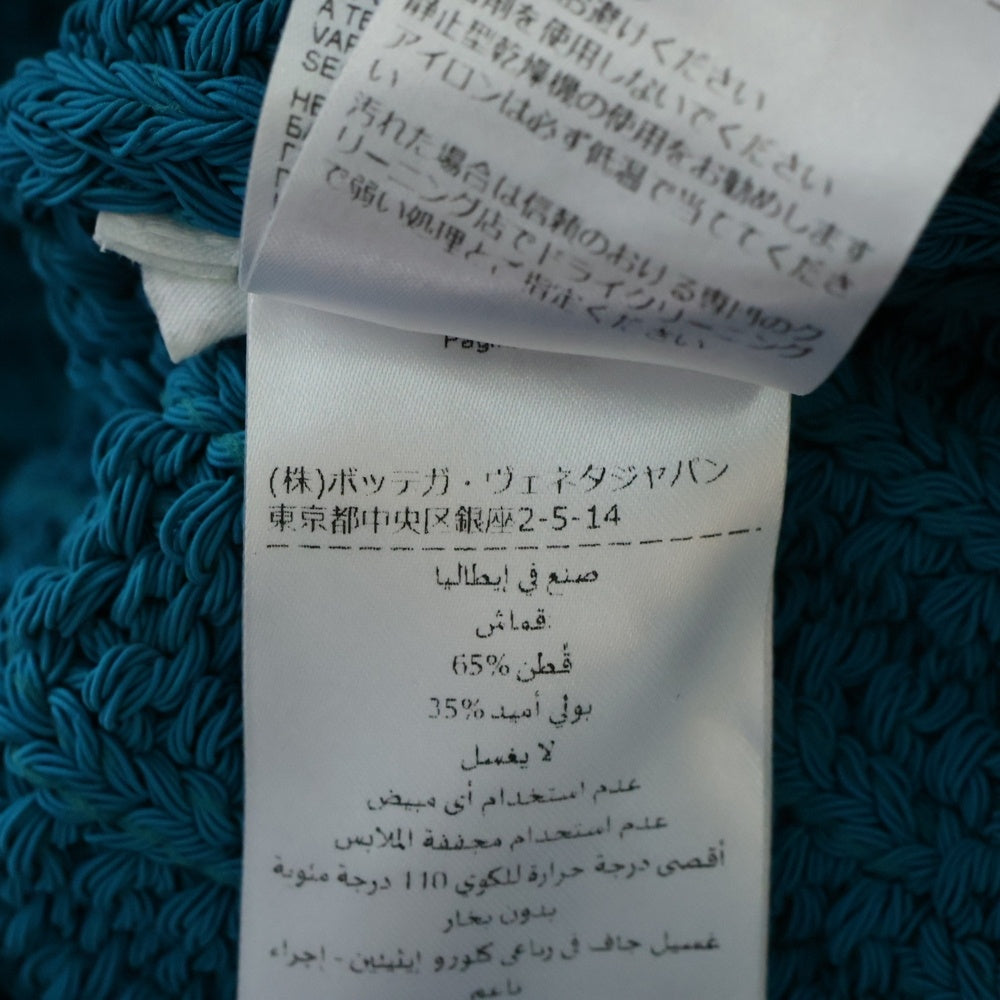 A TE
VAP
SE
HE
お避けください
剤を使用しないでください
静止型乾燥機の使用をお勧めします
アイロンは必ず低温で当ててくださ
い
汚れた場合は信頼のおける専門のク
リーニング店でドライクリーニング
で弱い処理とご指定ください
(株)ボッテガ・ヴェネタジャパン
東京都中央区銀座2-5-14
صنع في إيطاليا
قماش:
قُطن 65%
بولي أميد 35%
لا يغسل
عدم استخدام أي مبيض
عدم استخدام مجففة الملابس
أقصى درجة حرارة للكوي 110 درجة مئوية
بدون بخار
غسيل جاف في رباعي كلورو إيثيلين - إجراء
ناعم